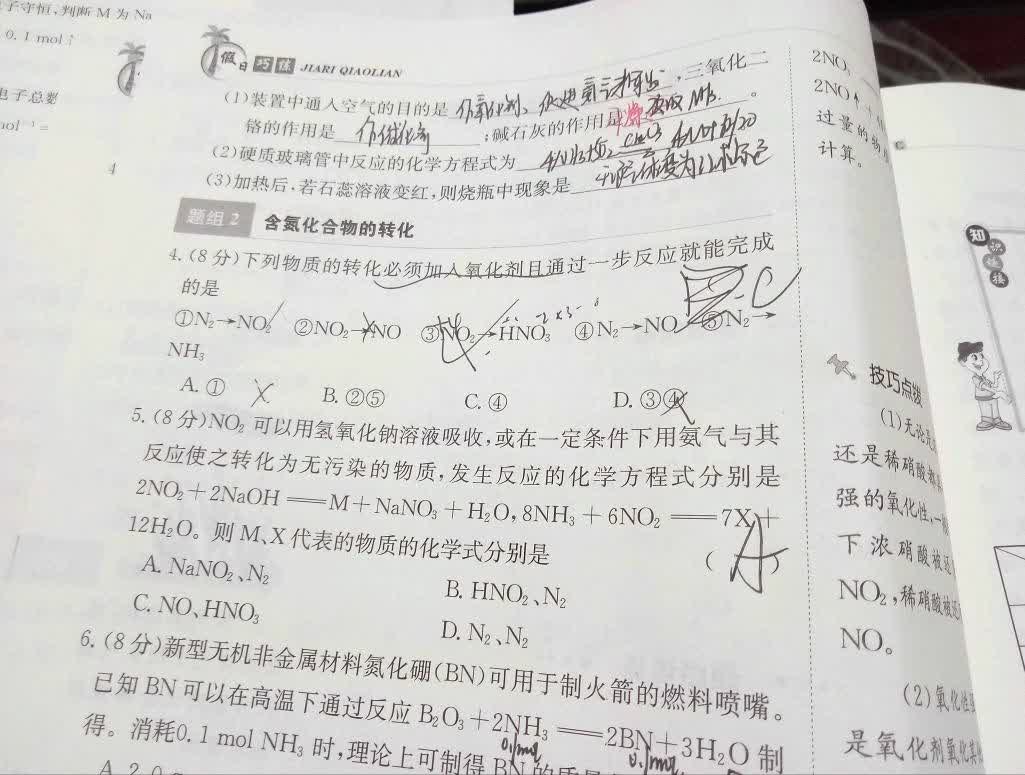 子守恒,判断 M 为 Na
0.1 mol
电子总数
4
假日巧练 JIARI QIAOLIAN
(1)装置中通入空气的目的是 作氧化剂、促进氨 ,三氧化二
铬的作用是 作催化剂 ;碱石灰的作用是 干燥 。
(2)硬质玻璃管中反应的化学方程式为
(3)加热后,若石蕊溶液变红,则烧瓶中现象是
题组 2 含氮化合物的转化
4.(8 分)下列物质的转化必须加入氧化剂且通过一步反应就能完成
的是 B C
①N₂→NO₂ ②NO₂→NO ③NO₂→HNO₃ ④N₂→NO ⑤N₂→
NH₃
A. ① B. ②⑤ C. ④ D. ③④
5.(8 分)NO₂ 可以用氢氧化钠溶液吸收,或在一定条件下用氨气与其
反应使之转化为无污染的物质,发生反应的化学方程式分别是
2NO₂+2NaOH══M+NaNO₃+H₂O,8NH₃+6NO₂══7X+
12H₂O。则 M、X 代表的物质的化学式分别是 ( A )
A. NaNO₂、N₂ B. HNO₂、N₂
C. NO、HNO₃ D. N₂、N₂
6.(8 分)新型无机非金属材料氮化硼(BN)可用于制火箭的燃料喷嘴。
已知 BN 可以在高温下通过反应 B₂O₃+2NH₃══2BN+3H₂O 制
得。消耗0.1 mol NH₃ 时,理论上可制得 BN 的质量
0.1mol 0.1mol
2NO
2NO↑
过量的物
计算。
技巧点拨
(1)无论是
还是稀硝酸都
强的氧化性,一般
下浓硝酸被还
NO₂,稀硝酸被还
NO。
(2)氧化性
是氧化剂氧化其
知识链接